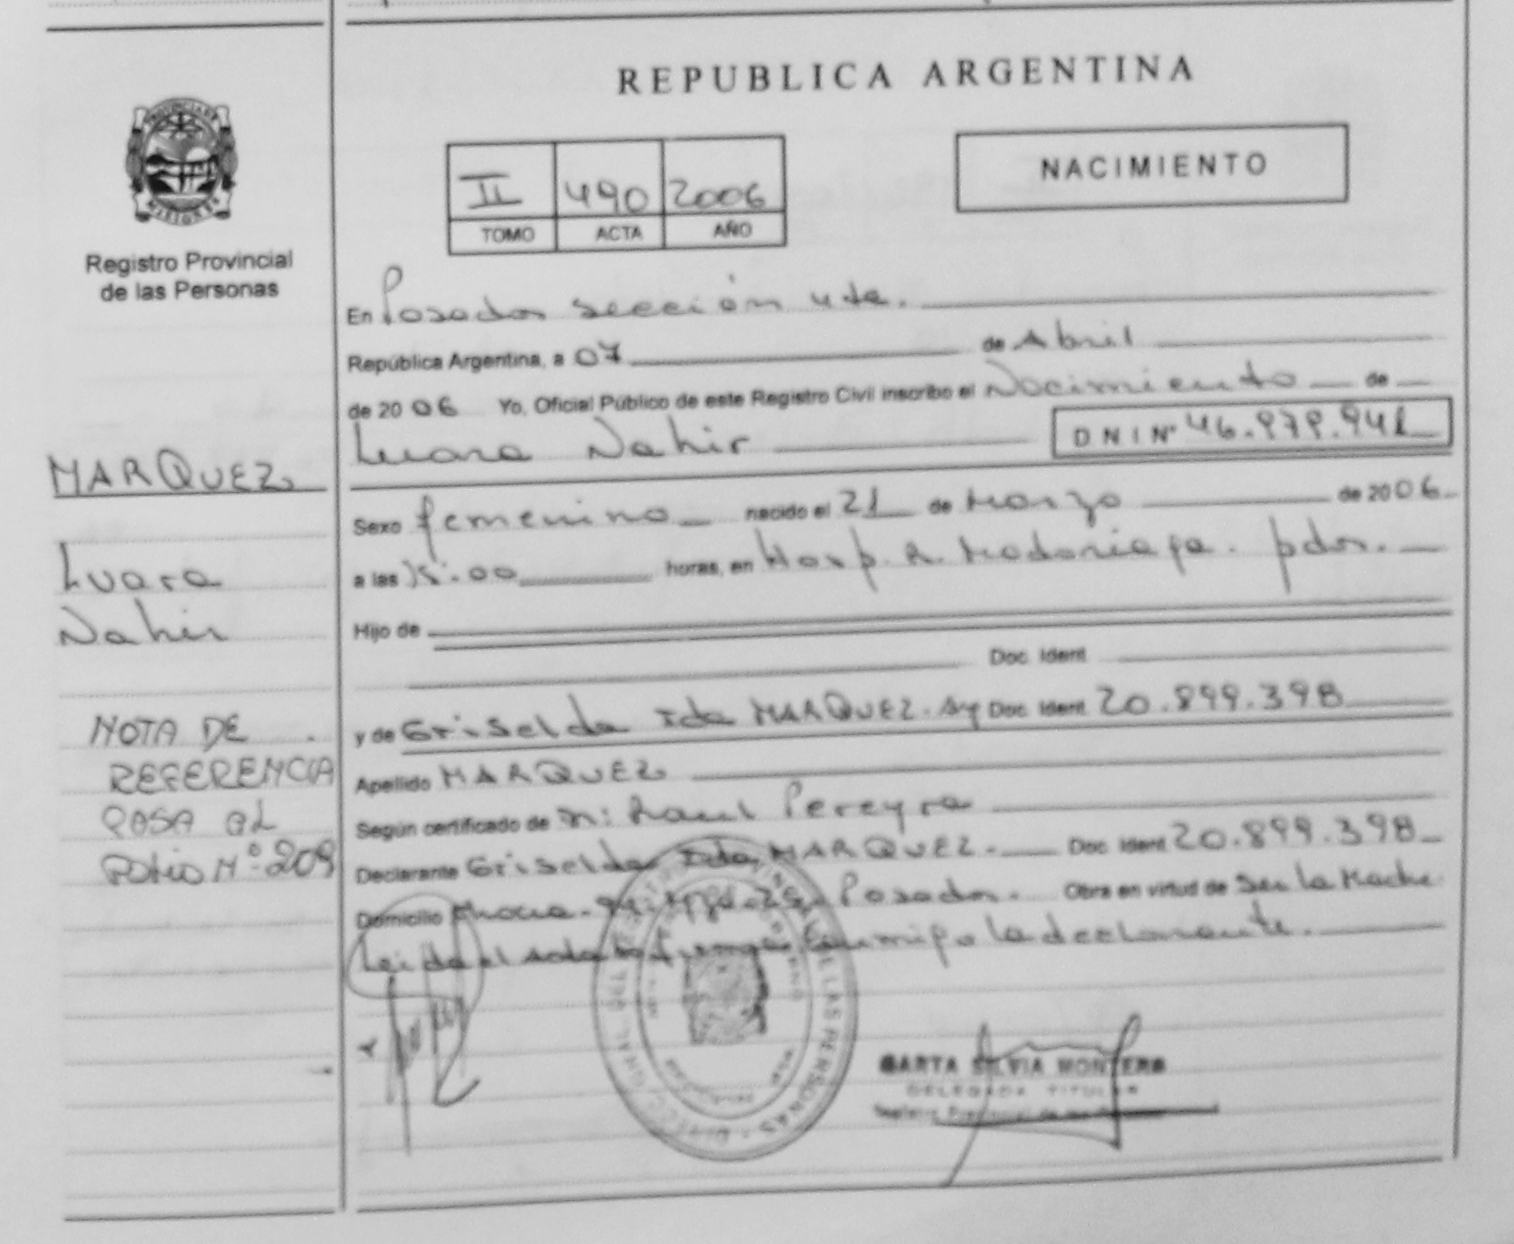 REPUBLICA ARGENTINA
PROVINCIA DE
MISIONES
Registro Provincial
de las Personas
II 490 2006
TOMO ACTA AÑO
NACIMIENTO
En Posadas sección 4ta.
República Argentina, a 07 de Abril
de 2006 Yo, Oficial Público de este Registro Civil inscribo el Nacimiento de
Luara Nahir
D N I Nº 46.979.941
Sexo femenino nacido el 21 de Marzo de 2006
a las 15:00 horas, en Hosp. R. Madariaga. pdas.
Hijo de
Doc. Ident.
y de Griselda Ida MARQUEZ. Arg Doc. Ident. 20.899.398
Apellido MARQUEZ
Según certificado de Raul Pereyra
Declarante Griselda Ida MARQUEZ. Doc. Ident. 20.899.398
Domicilio Posadas. Obra en virtud de Ser la Madre
Leida el acta la firman conmigo la declarante.
MARQUEZ
Luara
Nahir
NOTA DE
REFERENCIA
PASA AL
FOLIO Nº 209
DE LAS PERSONAS
SILVIA MONTERO
DELEGADA TITULAR
Registro Provincial de las Personas